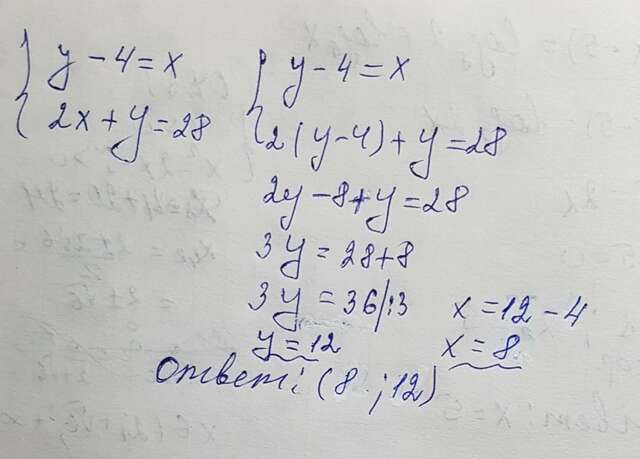 { y - 4 = x
2x + y = 28
{ y - 4 = x
2(y-4) + y = 28
2y - 8 + y = 28
3y = 28 + 8
3y = 36 /:3
y = 12
x = 12 - 4
x = 8
Ответ: (8 ; 12)